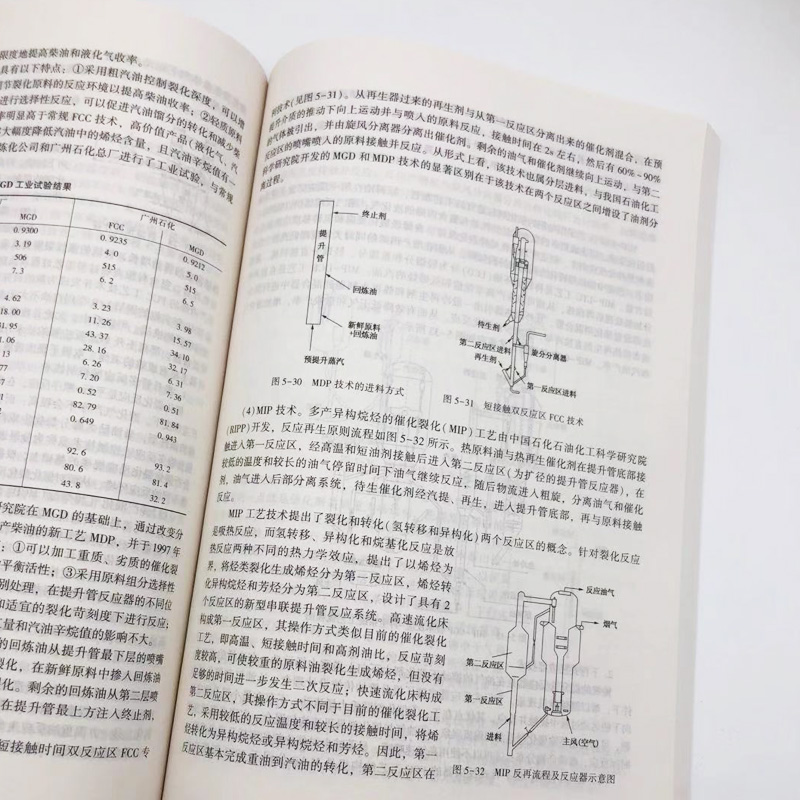 限度地提高柴油和液化气收率。
具有以下特点：①采用粗汽油控制裂化深度，可以增
节裂化原料的反应环境以提高柴油收率；②轻质原料
进行选择性反应，可以促进汽油馏分的转化和减少柴
率明显高于常规FCC技术，高价值产品（液化气、汽
大幅度降低汽油中的烯烃含量，且汽油辛烷值有一
炼化公司和广州石化总厂进行了工业试验，与常规
MGD工业试验结果
厂
广州石化
MGD
FCC
MGD
0.9300
0.9235
0.9212
3.19
4.0
5.0
506
515
515
7.3
6.2
6.5
4.62
3.23
3.98
18.00
11.26
15.57
31.95
43.37
34.10
28.16
32.17
6.26
6.31
7.20
7.36
0.52
0.51
82.79
81.84
0.649
0.943
92.6
93.2
80.6
81.4
43.8
32.2
究院在MGD的基础上，通过改变分
产柴油的新工艺MDP，并于1997年
：①可以加工重质、劣质的催化裂
平衡活性；③采用原料组分选择性
别处理，在提升管反应器的不同位
和适宜的裂化苛刻度下进行反应；
量和汽油辛烷值的影响不大。
的回炼油从提升管最下层的喷嘴
裂化，在新鲜原料中掺入回炼油
化。剩余的回炼油从第二层喷
在提升管最上方注入终止剂，
短接触时间双反应区FCC专
利技术（见图5-31）。从再生器过来的再生剂与从第一反应区分离出来的催化剂混合，在预
提升介质的推动下向上运动并与喷入的原料反应，接触时间在2s左右，然后有60%~90%
的气体被引出，并由旋风分离器分离出催化剂。剩余的油气和催化剂继续向上运动，与第二
反应区的喷嘴喷入的原料接触并反应。从形式上看，该技术也属分层进料，与我国石油化工
科学研究院开发的MGD和MDP技术的显著区别在于该技术在两个反应区之间增设了油剂分
离过程。
终止剂
提升管
回炼油
新鲜原料
+回炼油
预提升蒸汽
图5-30 MDP技术的进料方式
待生剂
第二反应区进料
再生剂
旋分分离器
第一反应区进料
图5-31 短接触双反应区FCC技术
(4)MIP技术。多产异构烷烃的催化裂化(MIP)工艺由中国石化石油化工科学研究院
(RIPP)开发，反应再生原则流程如图5-32所示。热原料油与热再生催化剂在提升管底部接
触进入第一反应区，经高温和短油剂接触后进入第二反应区(为扩径的提升管反应器)，在
较低的温度和较长的油气停留时间下油气继续反应，随后物流进入粗旋，分离油气和催化
剂，油气进入后部分离系统，待生催化剂经汽提、再生，进入提升管底部，再与原料接触
反应。
MIP工艺技术提出了裂化和转化(氢转移和异构化)两个反应区的概念。针对裂化反应
是吸热反应，而氢转移、异构化和烷基化反应是放
热反应两种不同的热力学效应，提出了以烯烃为
界，将烃类裂化生成烯烃分为第一反应区，烯烃转
化异构烷烃和芳烃分为第二反应区，设计了具有2
个反应区的新型串联提升管反应系统。高速流化床
构成第一反应区，其操作方式类似目前的催化裂化
工艺，即高温、短接触时间和高剂油比，反应苛刻
度较高，可使较重的原料油裂化生成烯烃，但没有
足够的时间进一步发生二次反应；快速流化床构成
第二反应区，其操作方式不同于目前的催化裂化工
艺，采用较低的反应温度和较长的接触时间，将烯
烃转化为异构烷烃或异构烷烃和芳烃。因此，第一
反应区基本完成重油到汽油的转化，第二反应区在
反应油气
烟气
第二反应区
第一反应区
进料
主风(空气)
图5-32 MIP反再流程及反应器示意图